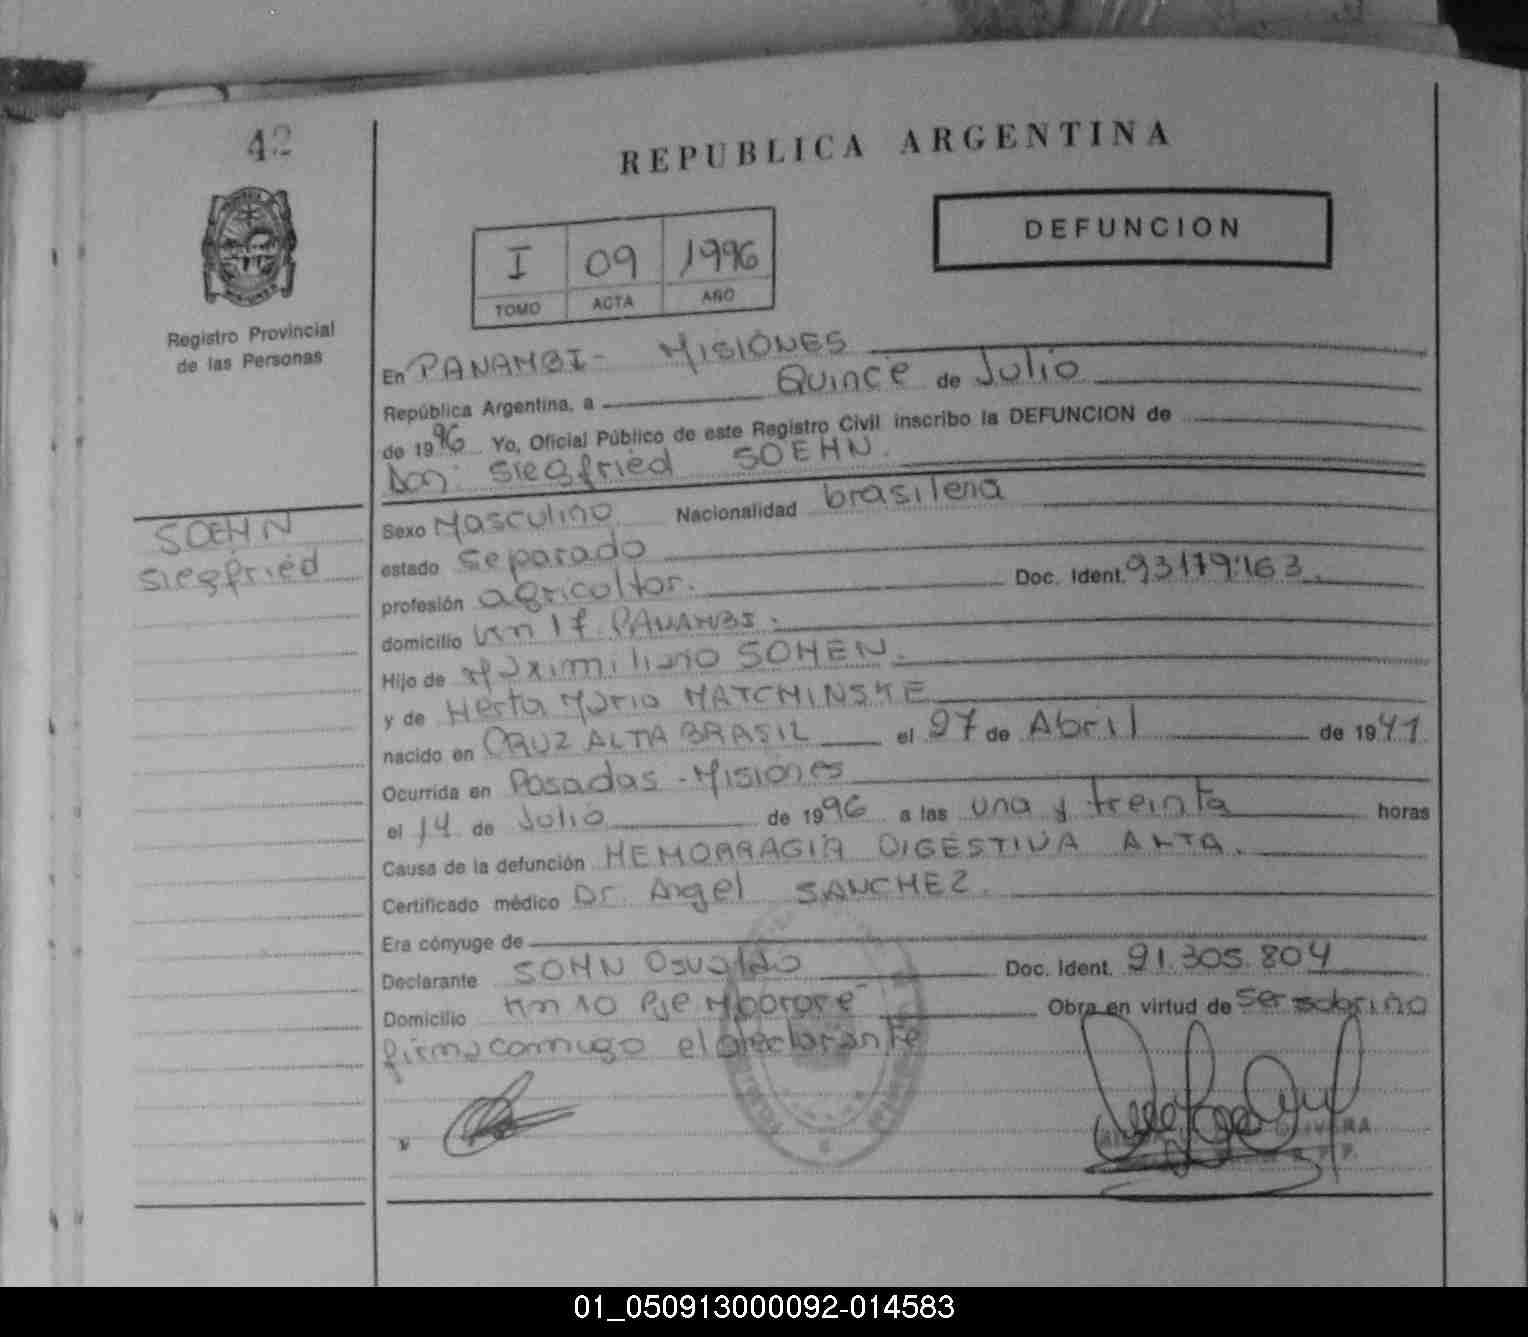 42
REPUBLICA ARGENTINA
DEFUNCION
I 09 1996
TOMO ACTA AÑO
Registro Provincial
de las Personas
En PANAMBI - MISIONES
República Argentina, a Quince de Julio
de 1996 Yo, Oficial Público de este Registro Civil inscribo la DEFUNCION de
Don: Siegfried SOEHN.
SOEHN
Siegfried
Sexo Masculino Nacionalidad brasilena
estado separado
profesión agricultor. Doc. Ident. 93179.163
domicilio Km 17 PANAMBI.
Hijo de Maximiliano SOHEN.
y de Herta Maria MATCHINSKE
nacido en CRUZ ALTA BRASIL el 27 de Abril de 1941
Ocurrida en Posadas - Misiones
el 14 de Julio de 1996 a las una y treinta horas
Causa de la defunción HEMORRAGIA DIGESTIVA ALTA.
Certificado médico Dr. Angel SANCHEZ.
Era cónyuge de
Declarante SOHN Osvaldo Doc. Ident. 91.305.804
Domicilio Km 10 Pje Mborore Obra en virtud de ser sobrino
firma conmigo el declarante
OLIVERA
01_050913000092-014583